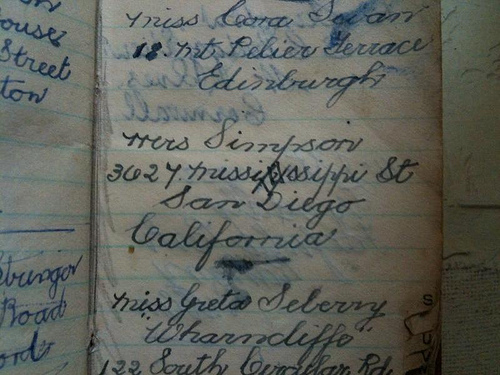 ouse
Street
ton
Stringer
Road
Miss Cora Swan
18. Mt. Pelier Terrace
Edinburgh
Mrs Simpson
3627 Mississippi St
San Diego
California
Miss Greta Seberry
Wharncliffe
122 South Circular Rd.
S